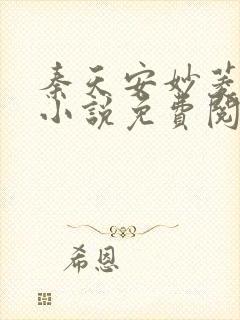 秦天安妙菱
小說免費閱
希恩